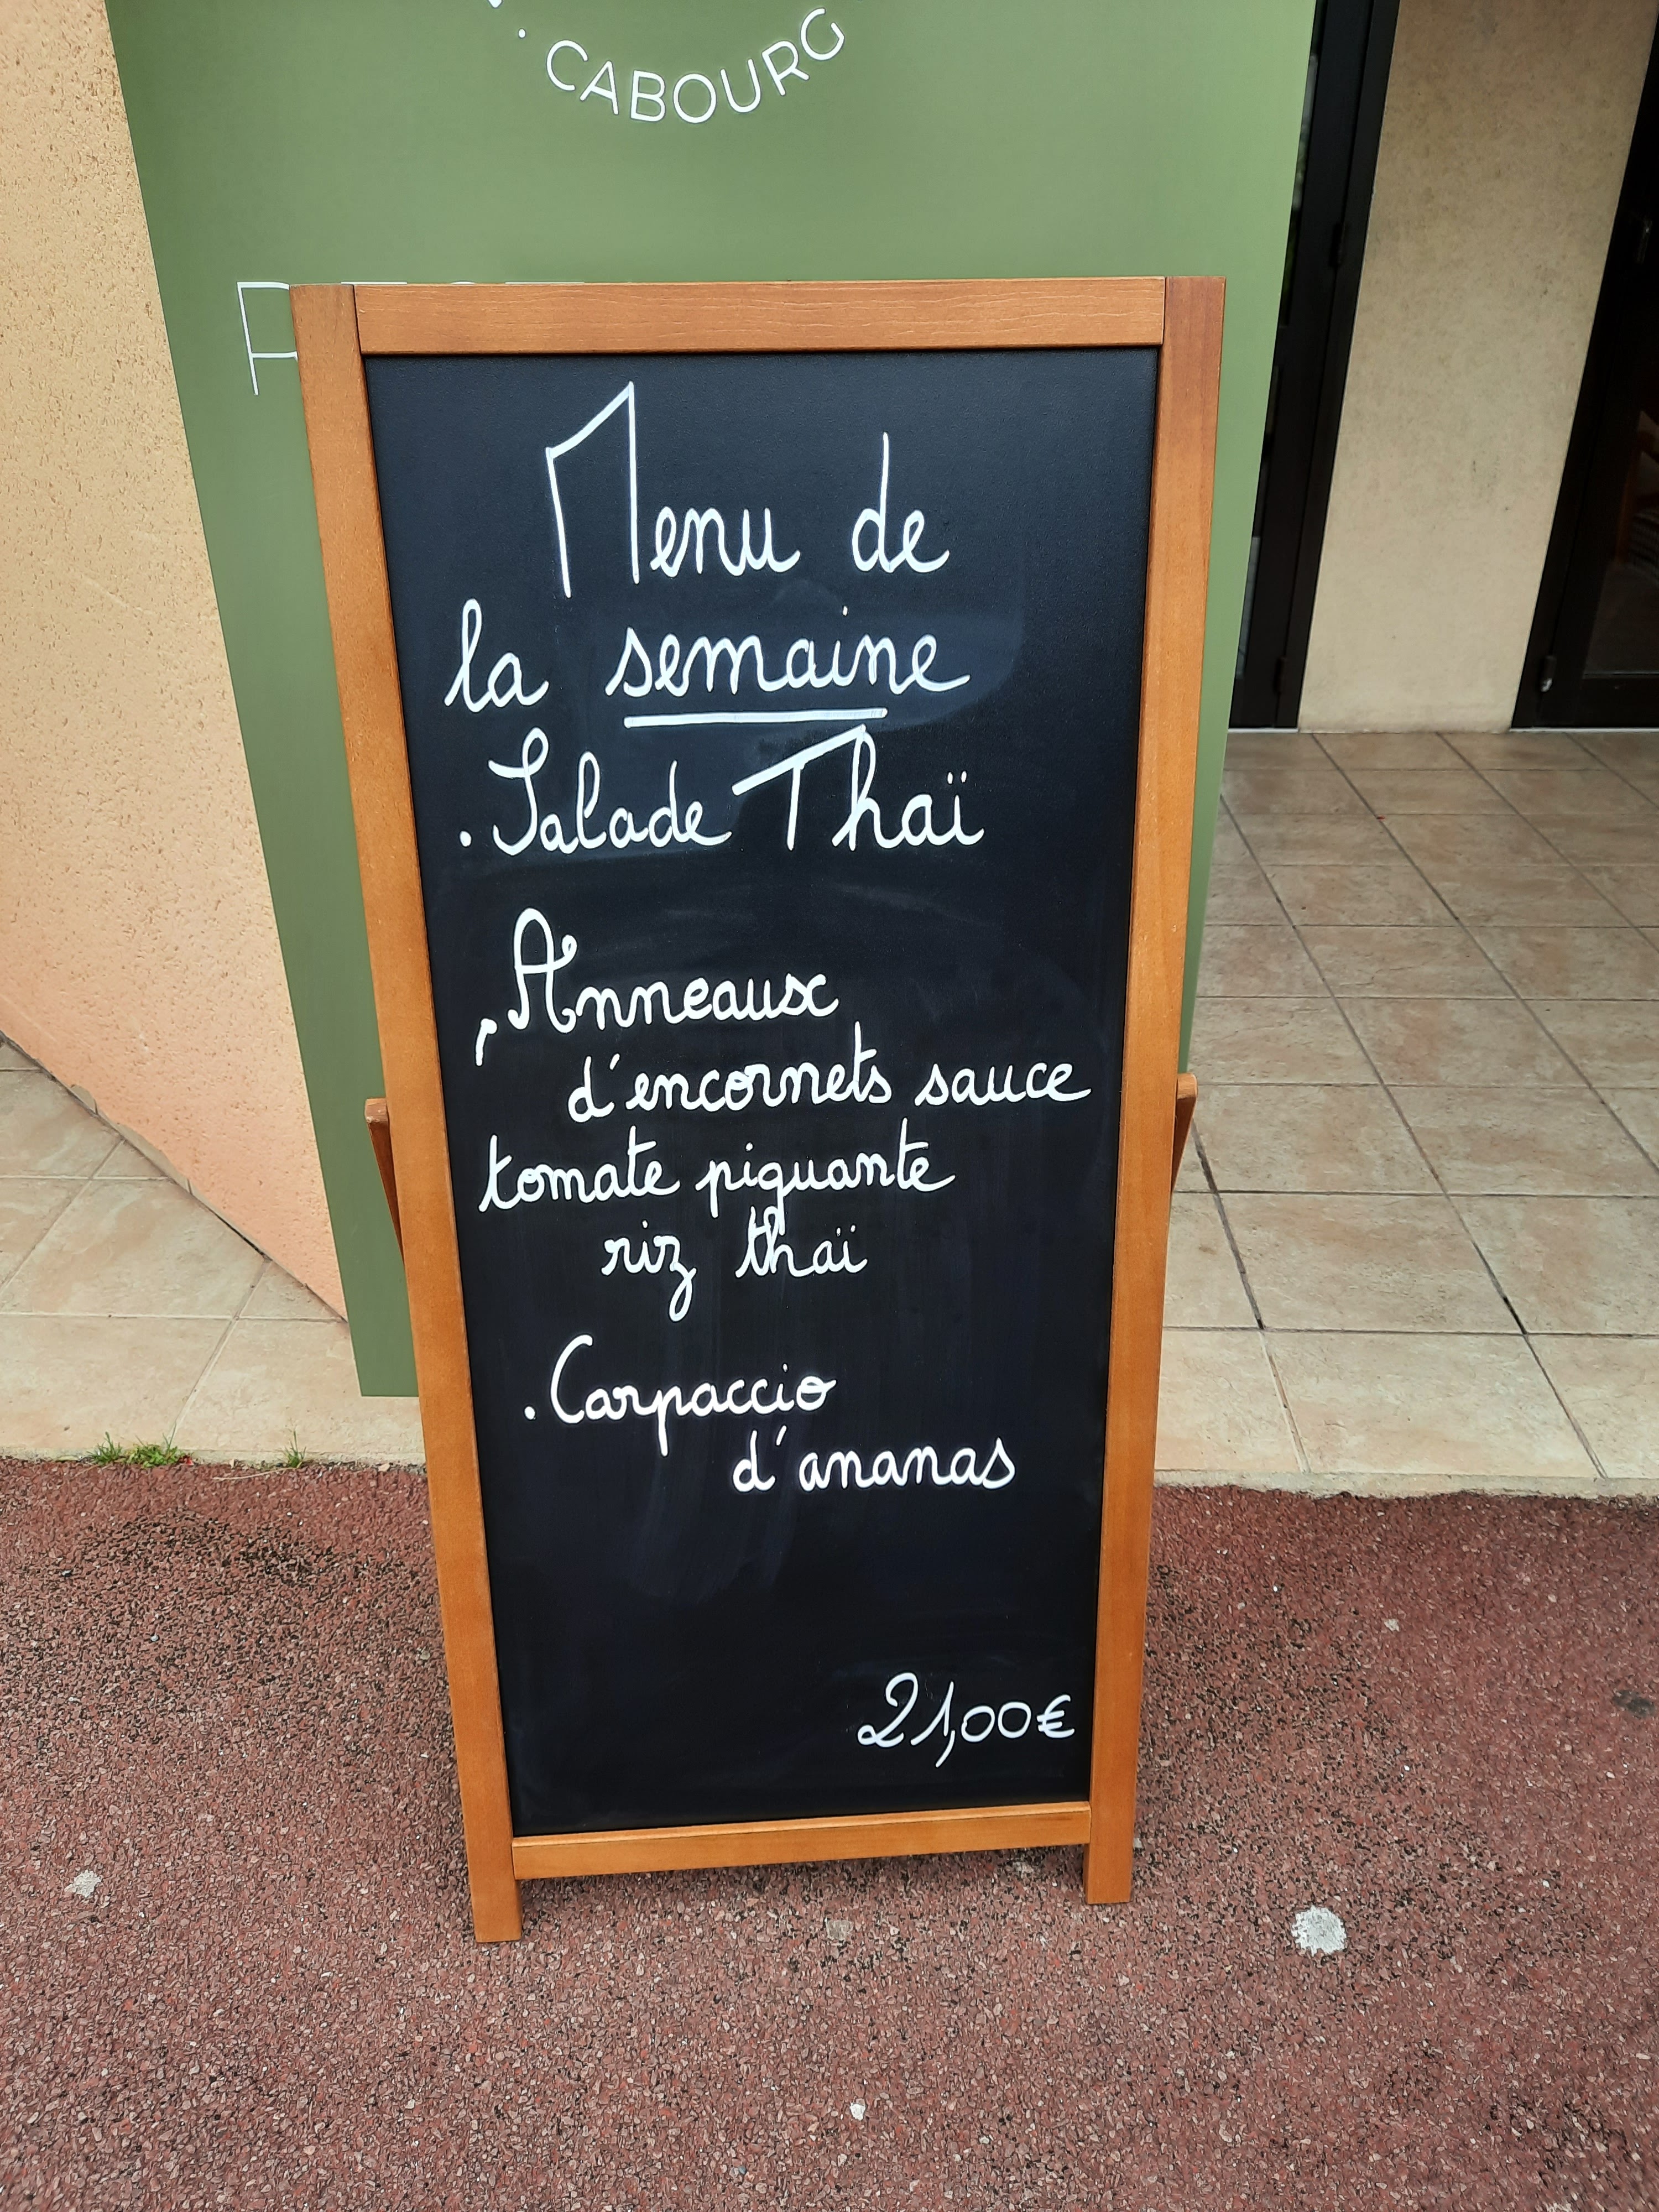 CABOURG
Menu de
la semaine
. Salade Thaï
. Anneaux
d'encornets sauce
tomate piquante
riz thaï
. Carpaccio
d'ananas
21,00€